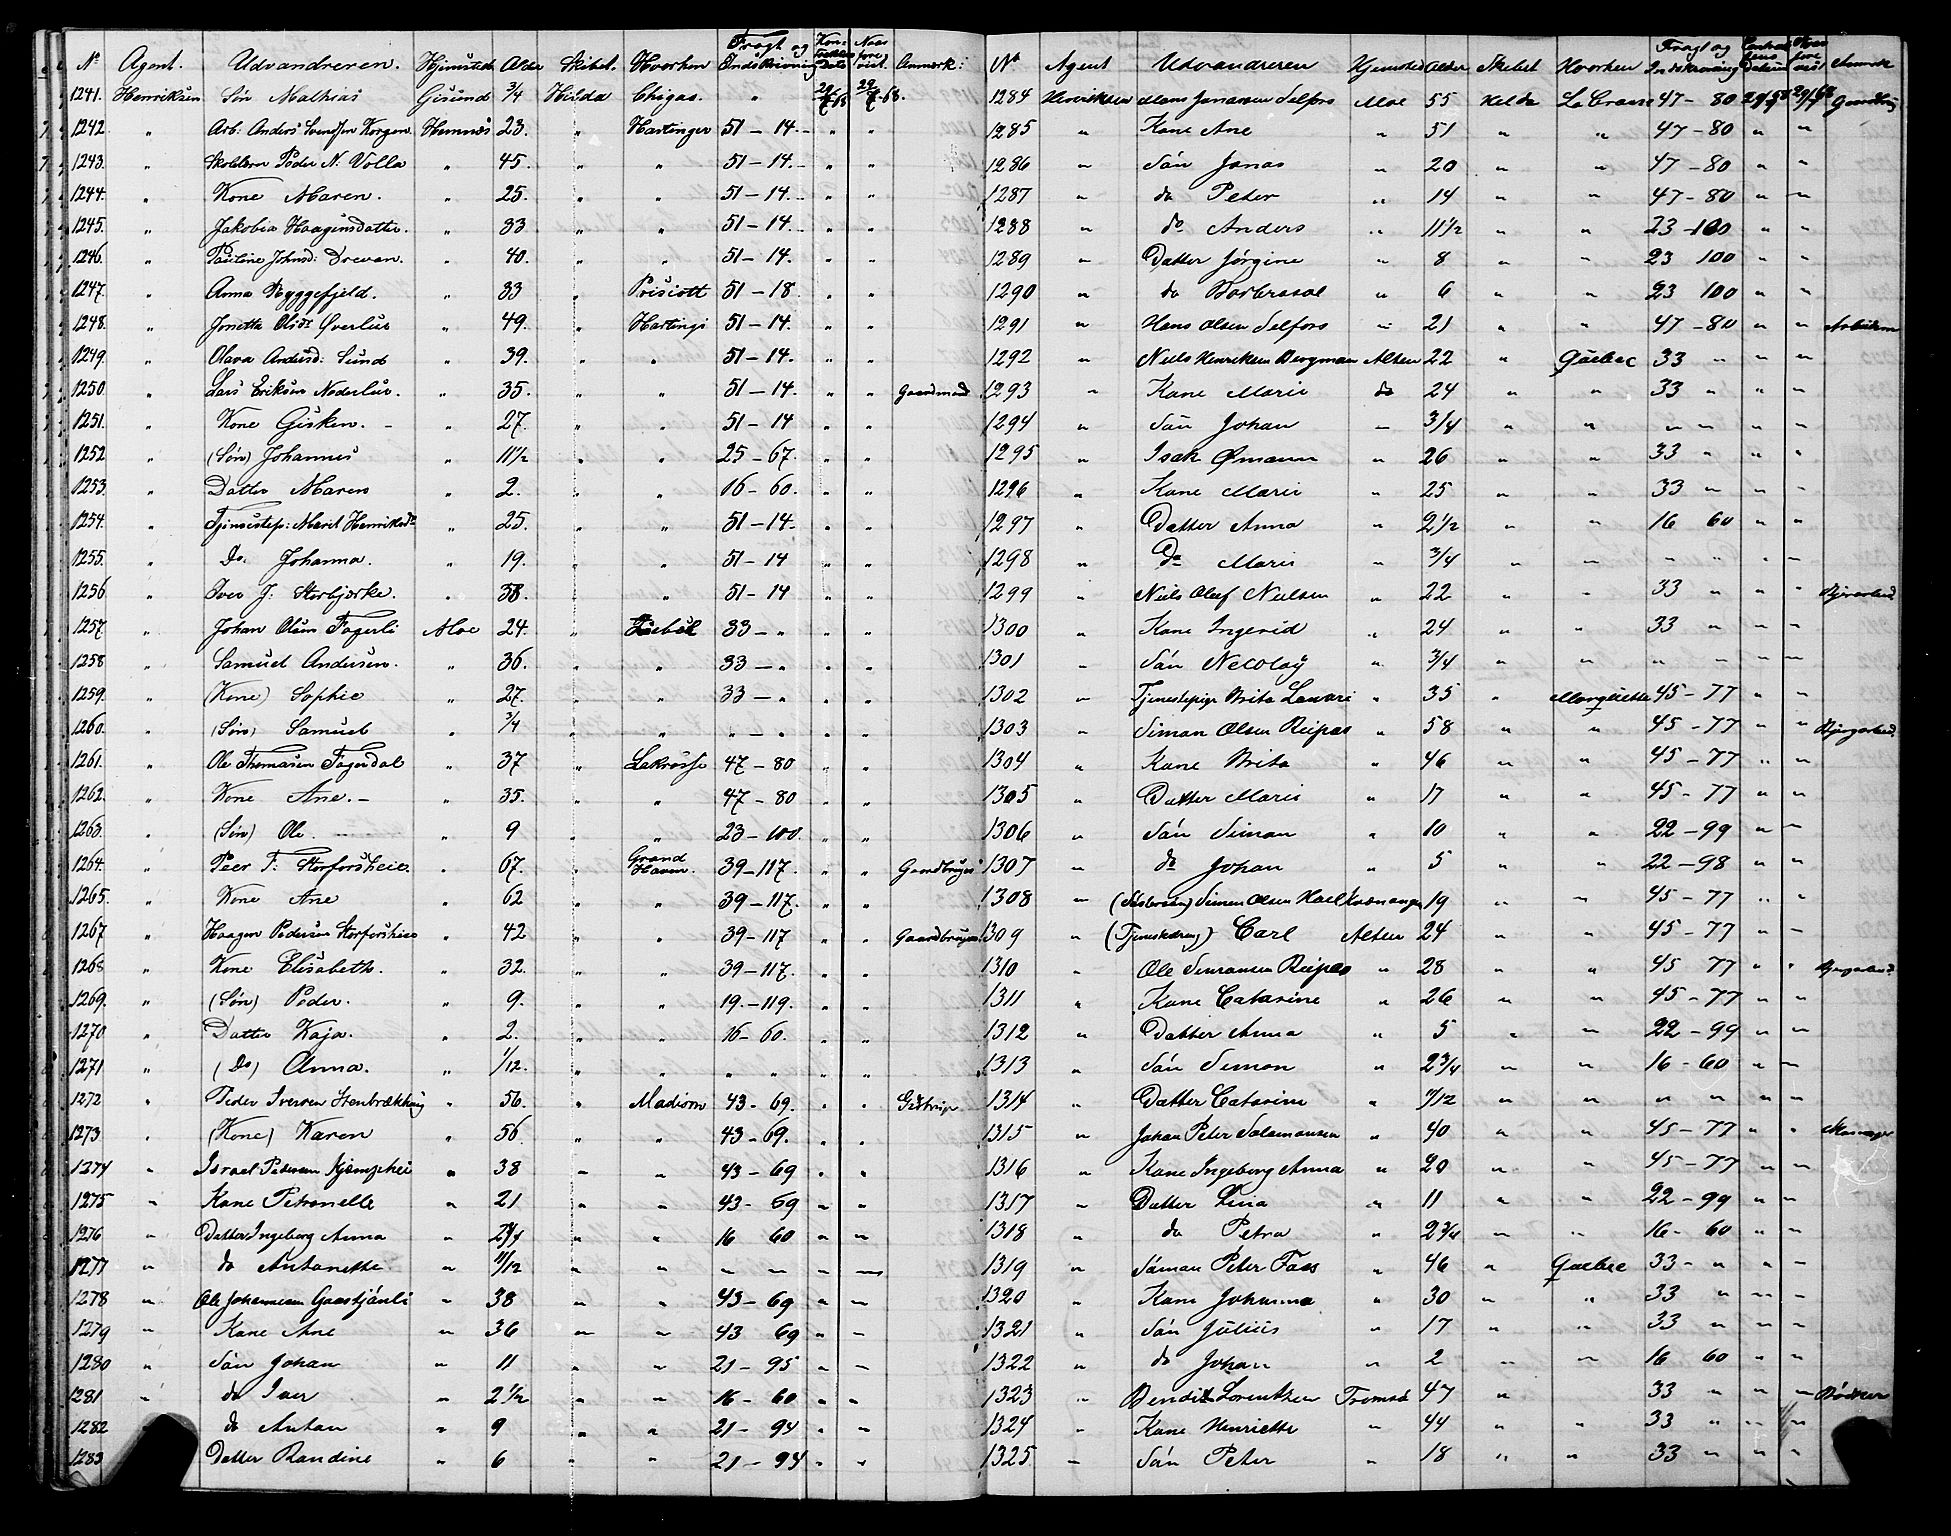 No Agent. Udvandreren. Hjemsted Alder Skibet. Hvorhen Fragt og Indskrivning Anmærk:
1241. Henriksen Søn Mathias Gisund 3/4 Hilda Chigao. "
1242. " Arb. Anders Svendsen Korgen Hemnes 23. " Hastinger 51-14. " "
1243. " Peder N. Volla " 45. " " 51-14. " "
1244. " Kone Maren. " 25. " " 51-14. " "
1245. " Jakobia Haagensdatter. " 33 " " 51-14. " "
1246. " Pauline Johnsd: Drevan. " 40. " " 51-14. " "
1247. " Anna Ryggefjeld. " 33 " 51-18. " "
1248. " Jonetta Olsdr Øverlur " 49. " Hastings 51-14. " "
1249. " Olava Andersd: Sund " 39. " " 51-14. " "
1250. " Lars Eriksen Nederlur. " 35. " " 51-14 " " Gaardmand
1251. " Kone Gisken. " 27. " " 51-14 " "
1252 " (Søn) Johannes " 11 1/2 " " 25-67. " "
1253. " Datter Maren " 2. " " 16-60. " "
1254. " Tjenestep: Marit Henriksdr " 25. " " 51-14. " "
1255. " Do. Johanna. " 19. " " 51-14 " "
1256 " Iver J: Storbjerke. " 38. " " 51-14 " "
1257. " Johan Olsen Fagerli Moe 24. " 33-" " "
1258 " Samuel Andersen. " 36. " " 33-" " "
1259. " (Kone) Sophie " 27. " " 33-" " "
1260. " (Søn) Samuel " 3/4 " " "-" " "
1261. " Ole Thomasen Fagerdal " 37 " Lakrosse 47-80 " "
1262. " Kone Ane.- " 35. " " 47-80 " "
1263. " (Søn) Ole. " 9 " " 23-100. " "
1264. " Peer T: Storforshei. " 67. " Grand Haven. 39-117. " "
1265. " Kone Ane " 62 " " 39-117. " "
1267 " Haagen Pedersen Storforshei " 42 " " 39-117 " "
1268 " Kone Elisabeth. " 32. " " 39-117. " "
1269. " (Søn) Peder. " 9. " " 19-119. " "
1270. " Datter Kaja. " 2. " " 16-60. " "
1271 " (Do) Anna. " 1/12. " " " " " "
1272 " Peder Iversen " 56. " 43-69. " "
1273 " (Kone) Karen " 56. " " 43-69. " "
1274 " Israel Pedersen " 38 " " 43-69 " "
1275 " Kone Petronelle " 21 " " 43-69 " "
1276 " Datter Ingeborg Anna " " " 16 60 " "
1277 " do Antonette " 11/12 " " " " " "
1278 " Ole Johannesen " 38 " " 43-69 " "
1279 " Kone Ane " 36 " " 43 69 " "
1280 " Sön Johan " 11 " " 21-95 " "
1281 " do Iver " 2 1/2 " " 16-60 " "
1282 " do Anton " 9 " " 21-94 " "
1283 " Datter Randine " 6 " " 21-94 " "
No Agent Udvandreren Hjemsted Alder Skibet Hvorhen Fragt og Indskrivning Anmærk
1284 Henriksen Selfors Moe 55 Hilda La Crosse 47-80
1285 " Kone Ane " 51 " " 47-80 " "
1286 " Sön Jonas " 20 " " 47-80 " "
1287 " do Peter " 14 " " 47-80 " "
1288 " do Anders " 11 1/2 " " 23-100 " "
1289 " Datter Jørgine " 8 " " 23 100 " "
1290 " do " 6 " " 23 100 " "
1291 " Hans Olsen Selfors " 21 " " 47-80 " "
1292 " Niels Henriksen Bergman Alten 22 " Quebec 33 " " "
1293 " Kone Marie do 24 " " 33 " " "
1294 " Sön Johan " 3/4 " " " " " "
1295 " Isak Ømann " 26 " " 33 " " "
1296 " Kone Marie " 25 " " 33 " " "
1297 " Datter Anna " 2 1/2 " " 16 60 " "
1298 " do Marie " 3/4 " " " " " "
1299 " Niels Olef Nielsen " 22 " " 33 " " "
1300 " Kone Ingerid " 24 " " 33 " " "
1301 " Sön Nicolay " 3/4 " " " " " "
1302 " Tjenestepige Brita " 35 " Marquette 45-77 " "
1303 " Simon Olsen Reipas " 58 " " 45-77 " "
1304 " Kone Brita " 46 " " 45-77 " "
1305 " Datter Marie " 17 " " 45-77 " "
1306 " Sön Simon " 10 " " 22-99 " "
1307 " do Johan " 5 " " 22-98 " "
1308 " Simon Olsen 19 " " 45-77 " "
1309 " Carl Alten 24 " " 45-77 " "
1310 " Ole Simonsen Reipas " 28 " " 45 77 " "
1311 " Kone Catarine " 26 " " 45-77 " "
1312 " Datter Anna " 5 " " 22-99 " "
1313 " Sön Simon " 2 3/4 " " 16-60 " "
1314 " Datter Catarine " " " " " " "
1315 " Johan Peter Salamonsen " 40 " " 45-77 " "
1316 " Kone Ingeborg Anna " 20 " " 45-77 " "
1317 " Datter Lina " 11 " " 22-99 " "
1318 " do Petra " 2 3/4 " " 16-60 " "
1319 " Peter " 46 " Quebec 33-" " "
1320 " Kone Johanna " 30 " " 33 " " "
1321 " Sön Julius " 17 " " 33 " " "
1322 " do Johan " 2 " " 16 60 " "
1323 " Bendik Lorentzen Tromsö 47 " 33 " " " Bödker
1324 " Kone Henriette " 44 " " 33 " " "
1325 " Sön Peter " 18 " " 33 " " "